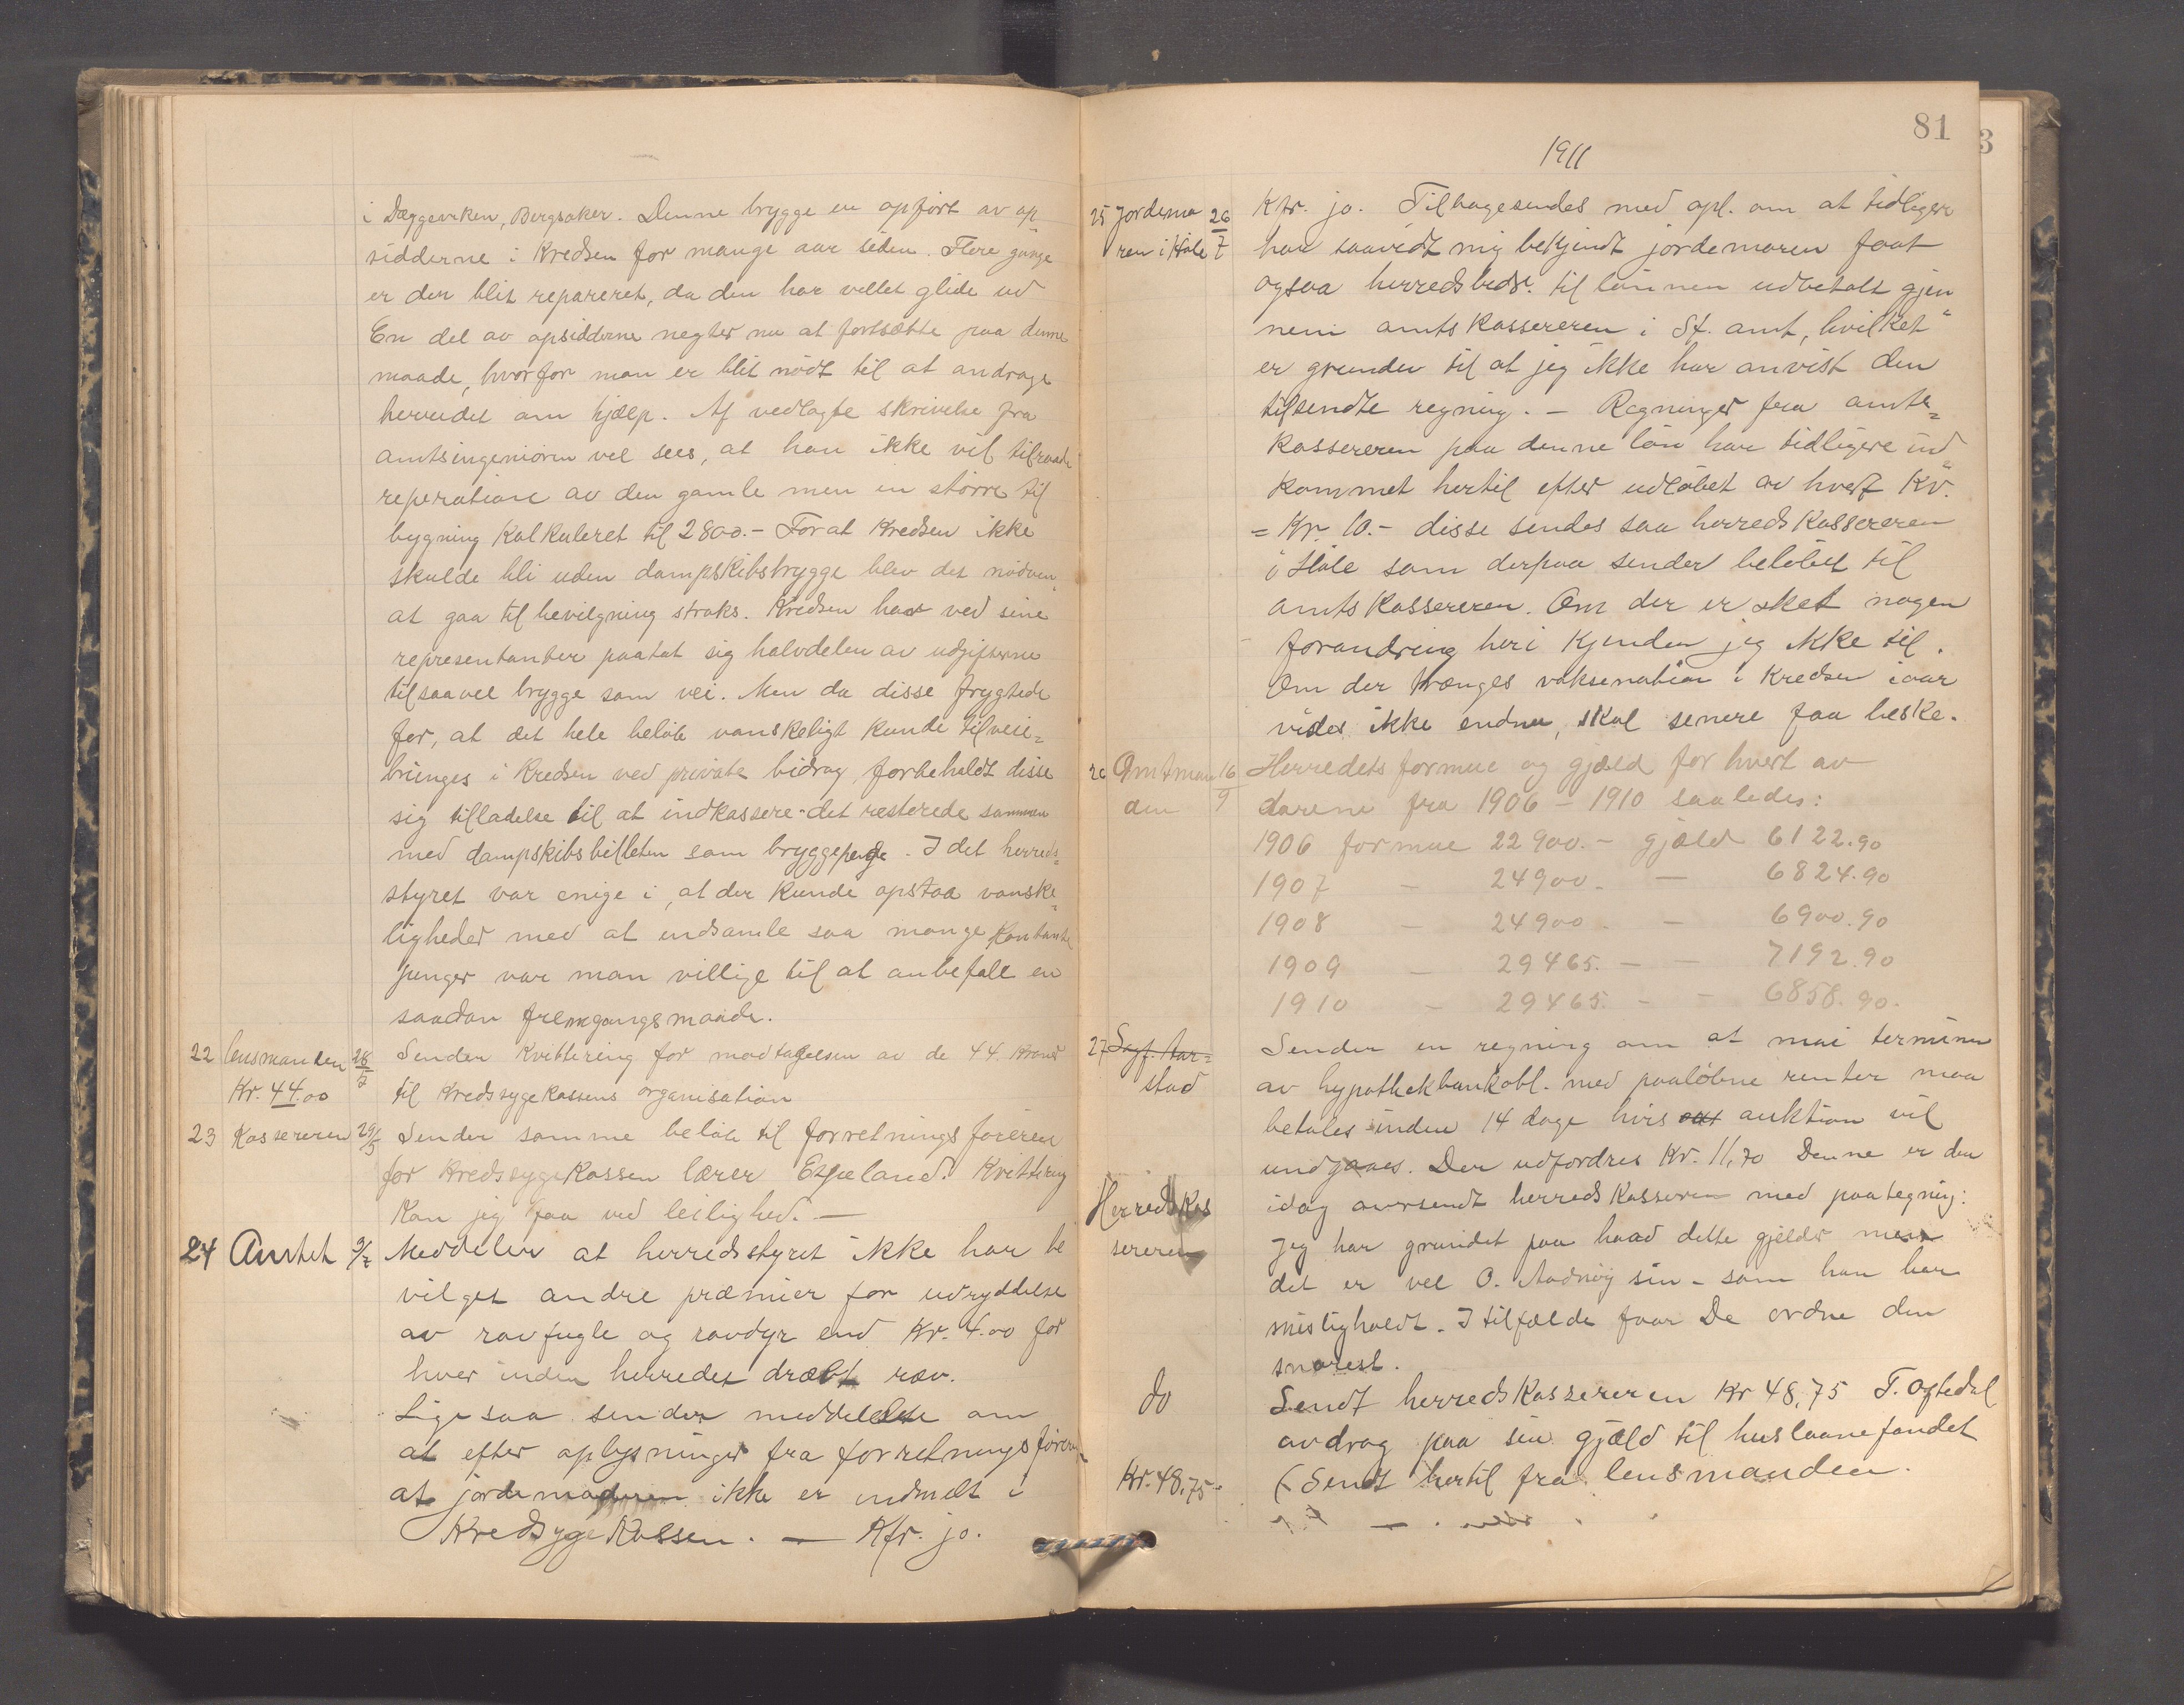 i Dæggeviken, Bergsaker. Denne brygge er opført av op
sidderne i Kredsen for mange aar siden. Flere gange
er den blit repareret, da den har villet glide ud
En del av opsidderne negter nu at fortsætte paa denne
maade, hvorfor man er blit nødt til at andrage
herredet om hjælp. Af vedlagte skrivelse fra
amtsingeniøren vel sees, at han ikke vil tilraade
reperation av den gamle men en større til
bygning Kalkuleret til 2800.- For at Kredsen ikke
skulde bli uden dampskibsbrygge blev det nødven
at gaa til bevilgning straks. Kredsen har ved sine
representanter paatat sig halvdelen av udgifterne
til saavel brygge som vei. Men da disse frygtede
for, at det hele beløb vanskeligt kunde tilveie=
bringes i Kredsen ved private bidrag, forbeholdt disse
sig tilladelse til at indkassere det resterede sammen
med dampskibsbilleten som bryggepenge. I det herreds=
styret var enige i, at der kunde opstaa vanske=
ligheder med at indsamle saa mange kontante
penger var man villige til at anbefale en
saadan fremgangsmaade.
22 lensmanden 28/5 Sender Kvittering for modtagelsen av de 44 Kroner
Kr. 44.00 til Kredssygekassens organisation
23 Kassereren 29/5 Sender samme beløb til forretningsføreren
for Kredssygekassen lærer Espeland. Kvittering
Kan jeg faa ved leilighed. —
24 Amtet 3/7 Meddeler at herredsstyret ikke har be
vilget andre præmier for udryddelse
av rovfugle og rovdyr end Kr. 4.00 for
hver inden herredet dræbt ræv.
Ligesaa sender meddelelse om
at efter oplysninger fra forretningsføreren
at jordemoderen ikke er indmelt i
Kredsygekassen. — Kfr. jo.
81
1911
25 Jordemo 26/7 Kfr. jo. Tilbagesendes med opl. om at tidligere
ren i Høle har saavidt mig bekjendt jordemoren faat
ogsaa herredsbidr. til lønnen udbetalt gjen
nem amtskassereren i St. amt, hvilket
er grunden til at jeg ikke har anvist den
tilsendte regning. – Regninger fra amts=
kassereren paa denne løn har tidligere ind
kommet hertil efter udløbet av hvert Kv.
= Kr. 10.- disse sendes saa herredskassereren
i Høle som derpaa sender beløbet til
amtskassereren. Om der er sket nogen
forandring heri Kjender jeg ikke til.
Om der trænges vaksination i Kredsen iaar
vides ikke endnu, skal senere faa beske.
26 Amtman 16/9 Herredets formue og gjæld for hvert av
den aarene fra 1906 – 1910 saaledes:
1906 formue 22900.- gjæld 6122.90
1907 — 24900.- — 6824.90
1908 — 24900.- — 6900.90
1909 — 29465.- — 7192.90
1910 — 29465.- — 6858.90.
27 Sagf. Aar= Sender en regning om at mai terminen
stad av hypothekbankobl. med paaløbne renter maa
betales inden 14 dage hvis auktion vil
undgaaes. Der udfordres Kr. 11,70 Denne er den
Herredskas idag oversendt herredskasseren med paategning:
sereren Jeg har grundet paa hvad dette gjelder men
det er vel O. Aadnøy sin – som han har
misligholdt. I tilfælde faar De ordne den
snarest.
do Sendt herredskassereren Kr 48,75 T. Oftedal
avdrag paa sin gjæld til huslaanefondet
Kr. 48,75 (Sendt hertil fra lensmanden.